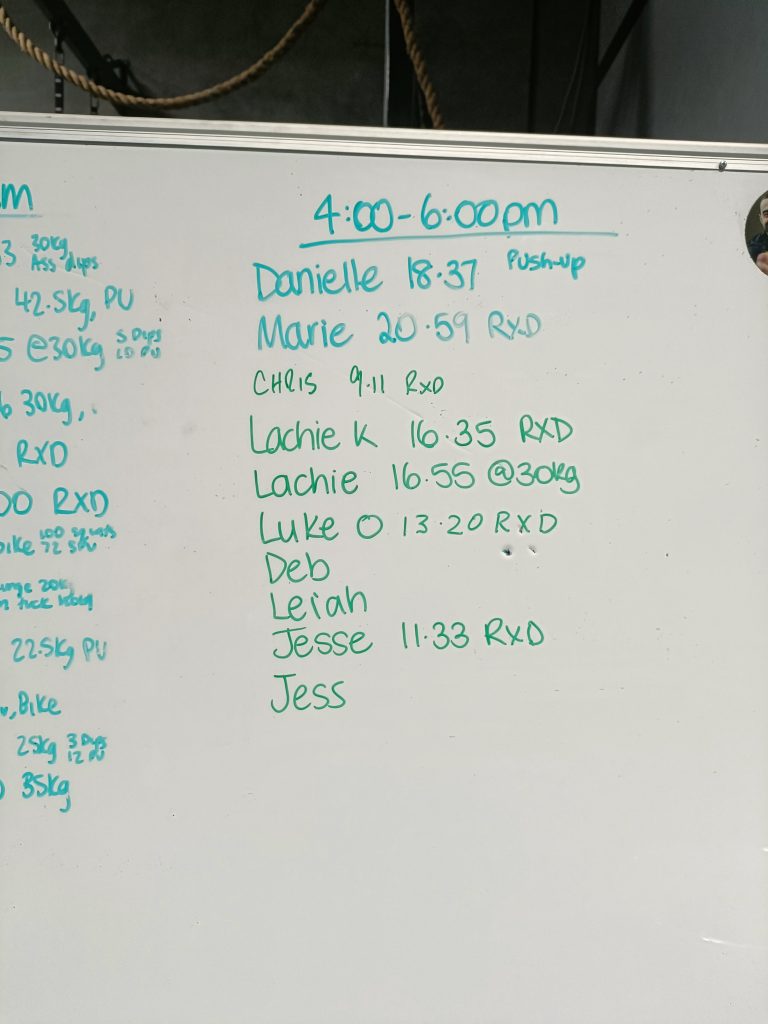 m
3 30kg
Ass dips
42.5kg, PU
5 @30kg 5 Dips
15 PU
6 30kg,
RXD
00 RXD
Bike 100 squats
72 SPU
unge 20k
tuck
22.5kg PU
, Bike
25kg 3 Dips
12 PU
35kg
4:00-6:00pm
Danielle 18.37 Push-up
Marie 20.59 RXD
CHRIS 9.11 RxD
Lachie K 16.35 RXD
Lachie 16.55 @30kg
Luke O 13.20 RXD
Deb
Leiah
Jesse 11.33 RXD
Jess